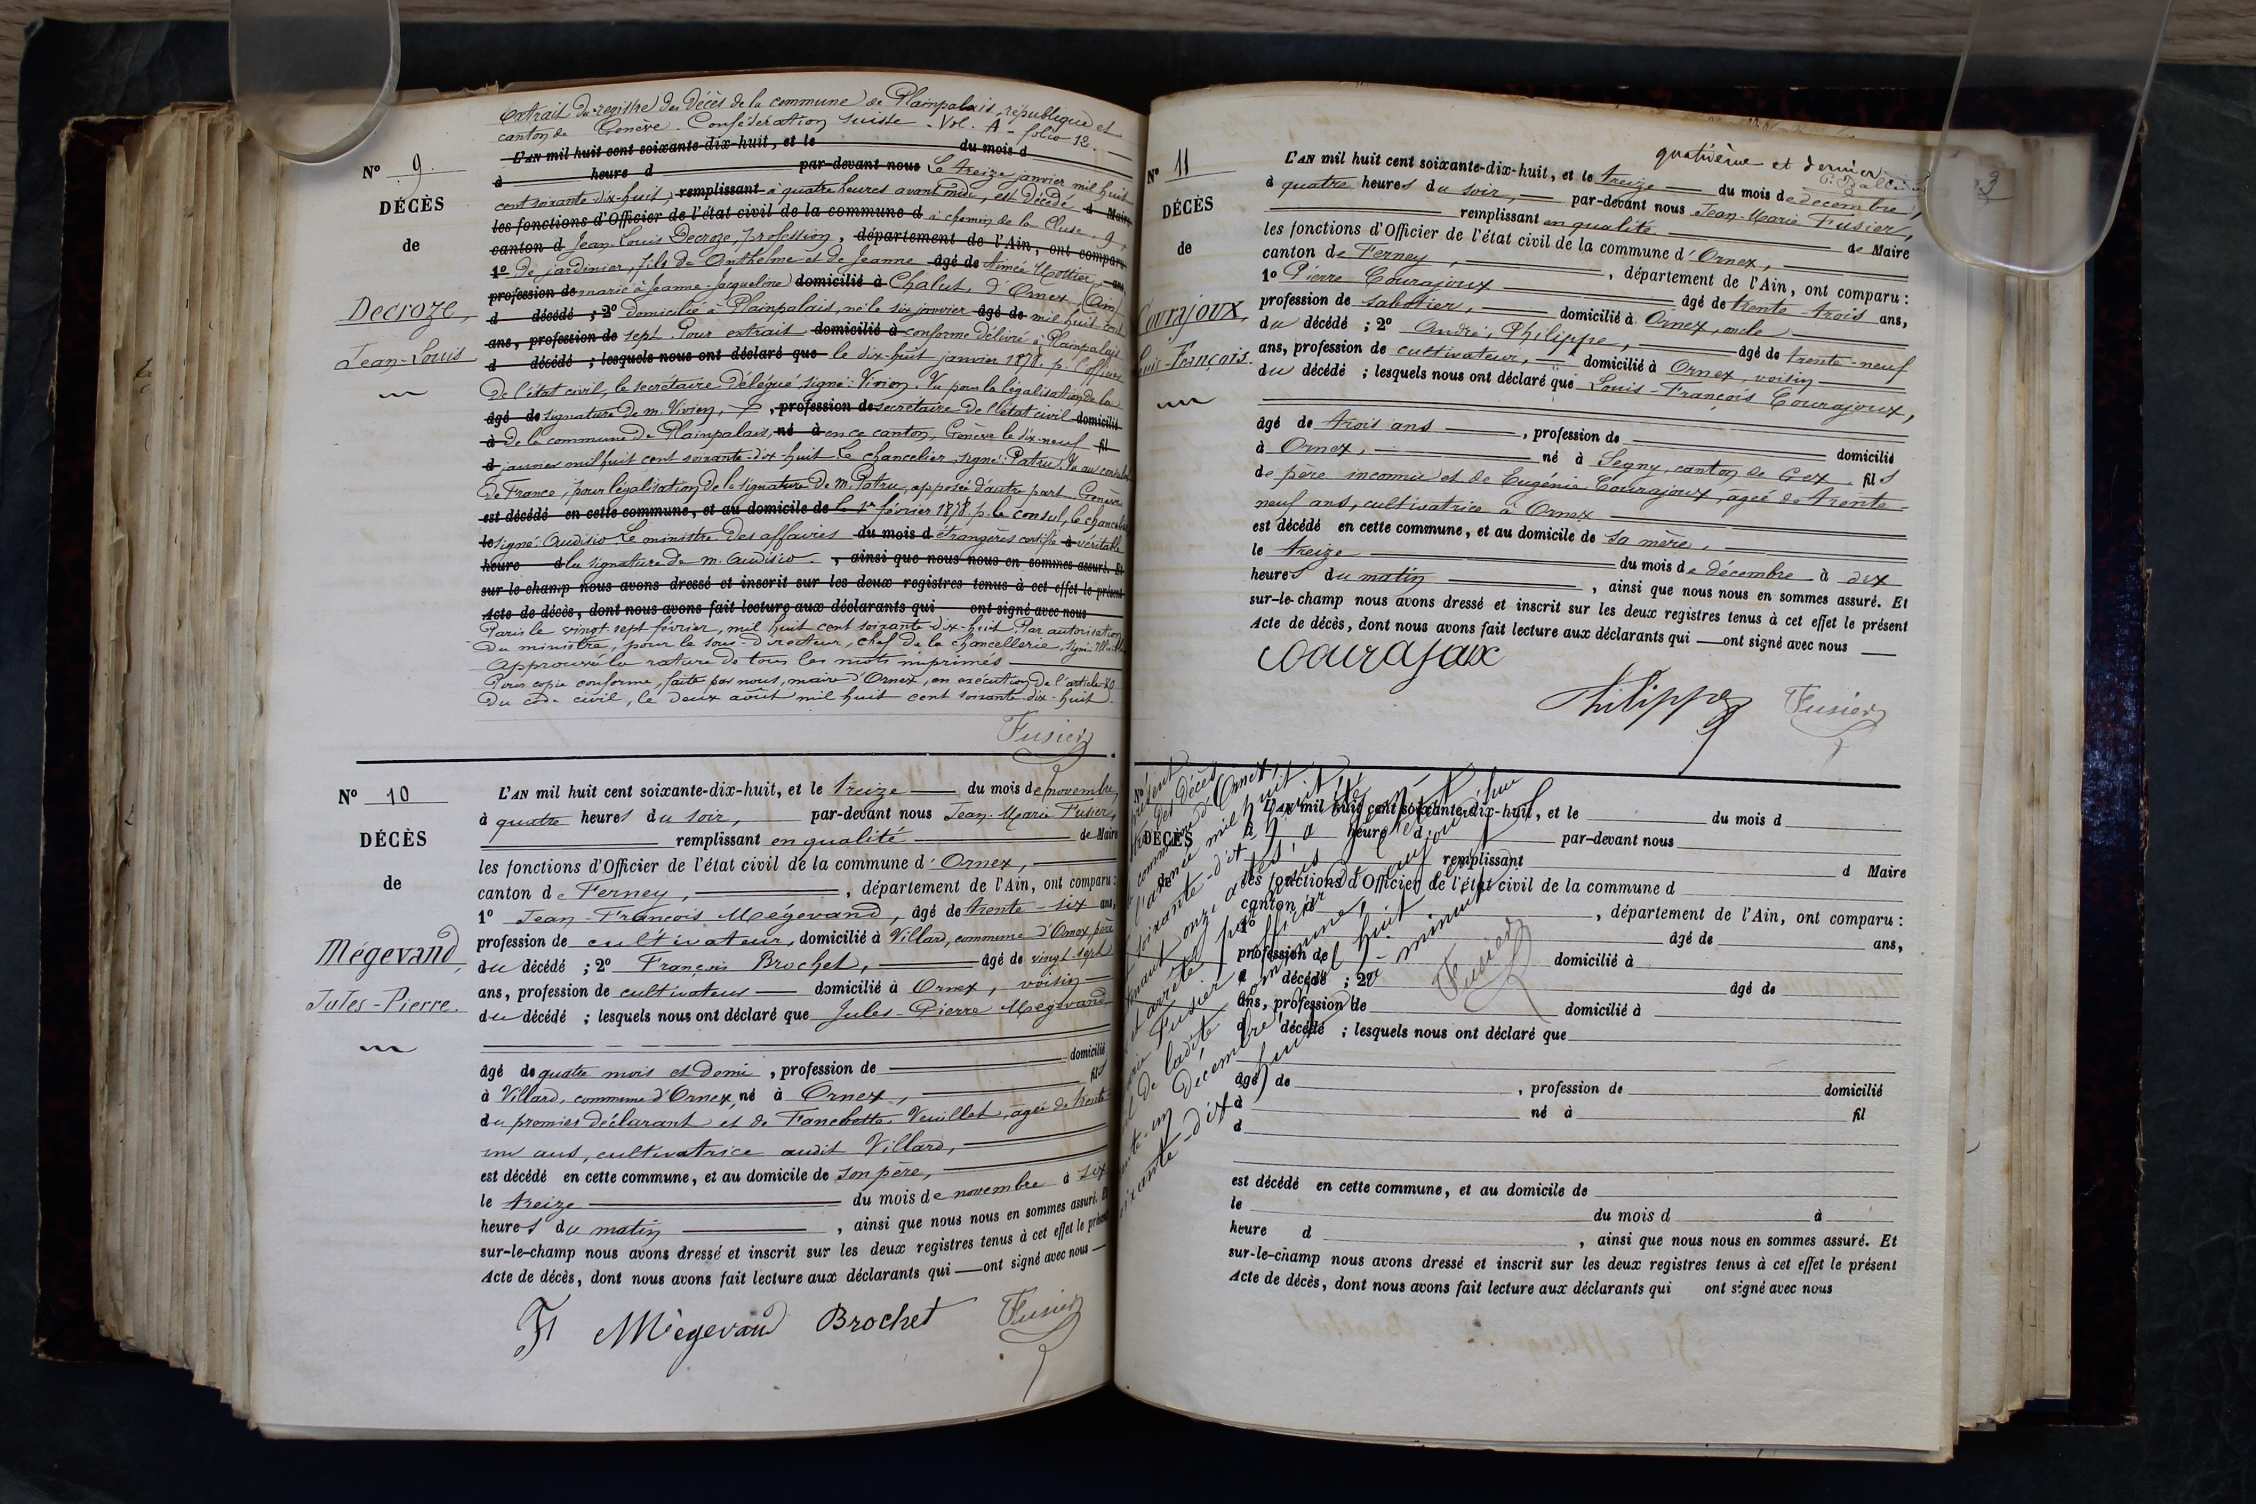 Extrait du registre des Décès de la commune de Plainpalais, république et
canton de Genève. Confédération suisse. Vol. A - folio 12.
L'AN mil huit cent soixante-dix-huit, et le du mois d
à heure d par-devant nous Le treize janvier mil huit
cent soixante-dix-huit, remplissant à quatre heures avant midi, est décédé d Maire
les fonctions d'Officier de l'état civil de la commune d à chemin de la Cluse, 9,
canton d Jean-Louis Decroze, profession, département de l'Ain, ont comparu
1° De jardinier, fils de Anthelme et de Jeanne âgé de Aimée Mottier, ans
profession de marié à Jeanne-Jacqueline domicilié à Chalut, d'Ornex (Ain)
d décédé ; 2° domicilié à Plainpalais, né le six janvier âgé de mil huit cent
ans, profession de sept. Pour extrait domicilié à conforme délivré à Plainpalais
d décédé ; lesquels nous ont déclaré que le dix-huit janvier 1878. p. l'officier
De l'état civil, le secrétaire délégué, signé: Vivien. Vu pour la légalisation de la
âgé de signature de m. Vivien, profession de secrétaire de l'état civil domicilié
à de la commune de Plainpalais, né à en ce canton, Genève le dix-neuf fil
d janvier mil huit cent soixante-dix-huit Le chancelier, signé: Patru. Vu au consulat
De France, pour légalisation de la signature de M. Patru, apposée d'autre part. Genève
est décédé en cette commune, et au domicile de le 1er février 1878. p. le consul, le chancelier
le signé: Audisio. Le ministre des affaires du mois d étrangères certifie à véritable
heure d la signature de m. Audisio. , ainsi que nous nous en sommes assuré. Et
sur-le-champ nous avons dressé et inscrit sur les deux registres tenus à cet effet le présent
Acte de décès, dont nous avons fait lecture aux déclarants qui ont signé avec nous
Paris le vingt-sept février, mil huit cent soixante-dix-huit, Par autorisation
Du ministre, pour le sous-directeur, chef de la chancellerie, signé:
Approuvé la rature de tous les mots imprimés
Pour copie conforme, faite par nous, maire d'Ornex, en exécution de l'article 80
Du code civil, le deux août mil huit cent soixante-dix-huit.
Fusier
N° 9
DÉCÈS
de
Decroze,
Jean-Louis
N° 10
DÉCÈS
de
Mégevand,
Jules-Pierre.
L'AN mil huit cent soixante-dix-huit, et le treize du mois de novembre,
à quatre heures du soir, par-devant nous Jean-Marie Fusier,
remplissant en qualité de Maire
les fonctions d'Officier de l'état civil de la commune d'Ornex,
canton de Ferney, , département de l'Ain, ont comparu :
1° Jean-François Mégevand, âgé de trente-six ans,
profession de cultivateur, domicilié à Villard, commune d'Ornex, père
du décédé ; 2° François Brochet, âgé de vingt-sept
ans, profession de cultivateur domicilié à Ornex, voisin
du décédé ; lesquels nous ont déclaré que Jules-Pierre Mégevand
âgé de quatre mois et demi , profession de domicilié
à Villard, commune d'Ornex, né à Ornex, fils
du premier déclarant et de Fanchette Vuillet, âgée de trente-
un ans, cultivatrice audit Villard,
est décédé en cette commune, et au domicile de son père,
le treize du mois de novembre à six
heures du matin , ainsi que nous nous en sommes assuré. Et
sur-le-champ nous avons dressé et inscrit sur les deux registres tenus à cet effet le présent
Acte de décès, dont nous avons fait lecture aux déclarants qui ont signé avec nous
F Mégevand Brochet Fusier
quatrième et dernier
3
N° 11
DÉCÈS
de
Courajoux,
Louis-François.
L'AN mil huit cent soixante-dix-huit, et le treize du mois de décembre,
à quatre heures du soir, par-devant nous Jean-Marie Fusier,
remplissant en qualité de Maire
les fonctions d'Officier de l'état civil de la commune d'Ornex,
canton de Ferney, , département de l'Ain, ont comparu :
1° Pierre Courajoux âgé de trente-trois ans,
profession de sabotier, domicilié à Ornex, oncle
du décédé ; 2° André, Philippe, âgé de trente-neuf
ans, profession de cultivateur, domicilié à Ornex, voisin
du décédé ; lesquels nous ont déclaré que Louis-François Courajoux,
âgé de trois ans , profession de domicilié
à Ornex, né à Segny, canton de Gex, fils
de père inconnu et de Eugénie Courajoux, âgée de trente-
neuf ans, cultivatrice à Ornex
est décédé en cette commune, et au domicile de sa mère,
le treize du mois de décembre à dix
heures du matin , ainsi que nous nous en sommes assuré. Et
sur-le-champ nous avons dressé et inscrit sur les deux registres tenus à cet effet le présent
Acte de décès, dont nous avons fait lecture aux déclarants qui ont signé avec nous
Courajoux
Philippe Fusier
N°
DÉCÈS
de
L'AN mil huit cent soixante-dix-huit, et le du mois d
à heure d par-devant nous
remplissant d Maire
les fonctions d'Officier de l'état civil de la commune d
canton d , département de l'Ain, ont comparu :
1° âgé de ans,
profession de domicilié à
d décédé ; 2° âgé de
ans, profession de domicilié à
d décédé ; lesquels nous ont déclaré que
âgé de , profession de domicilié
à né à fil
d
est décédé en cette commune, et au domicile de
le du mois d à
heure d , ainsi que nous nous en sommes assuré. Et
sur-le-champ nous avons dressé et inscrit sur les deux registres tenus à cet effet le présent
Acte de décès, dont nous avons fait lecture aux déclarants qui ont signé avec nous
présent
des Décès
commune d'Ornex,
l'année mil huit
soixante-dix-huit
onze actes, a été
et arrêté par nous
Fusier officier de l'état
de ladite commune, aujourd'hui
décembre mil huit cent
soixante-dix-huit à minuit
Fusier